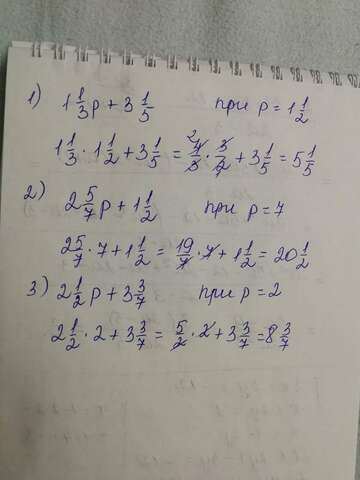 1) 1 1/3 p + 3 1/5 при p = 1 1/2
1 1/3 · 1 1/2 + 3 1/5 = 4/3 · 3/2 + 3 1/5 = 5 1/5
2) 2 5/7 p + 1 1/2 при p = 7
2 5/7 · 7 + 1 1/2 = 19/7 · 7 + 1 1/2 = 20 1/2
3) 2 1/2 p + 3 3/7 при p = 2
2 1/2 · 2 + 3 3/7 = 5/2 · 2 + 3 3/7 = 8 3/7